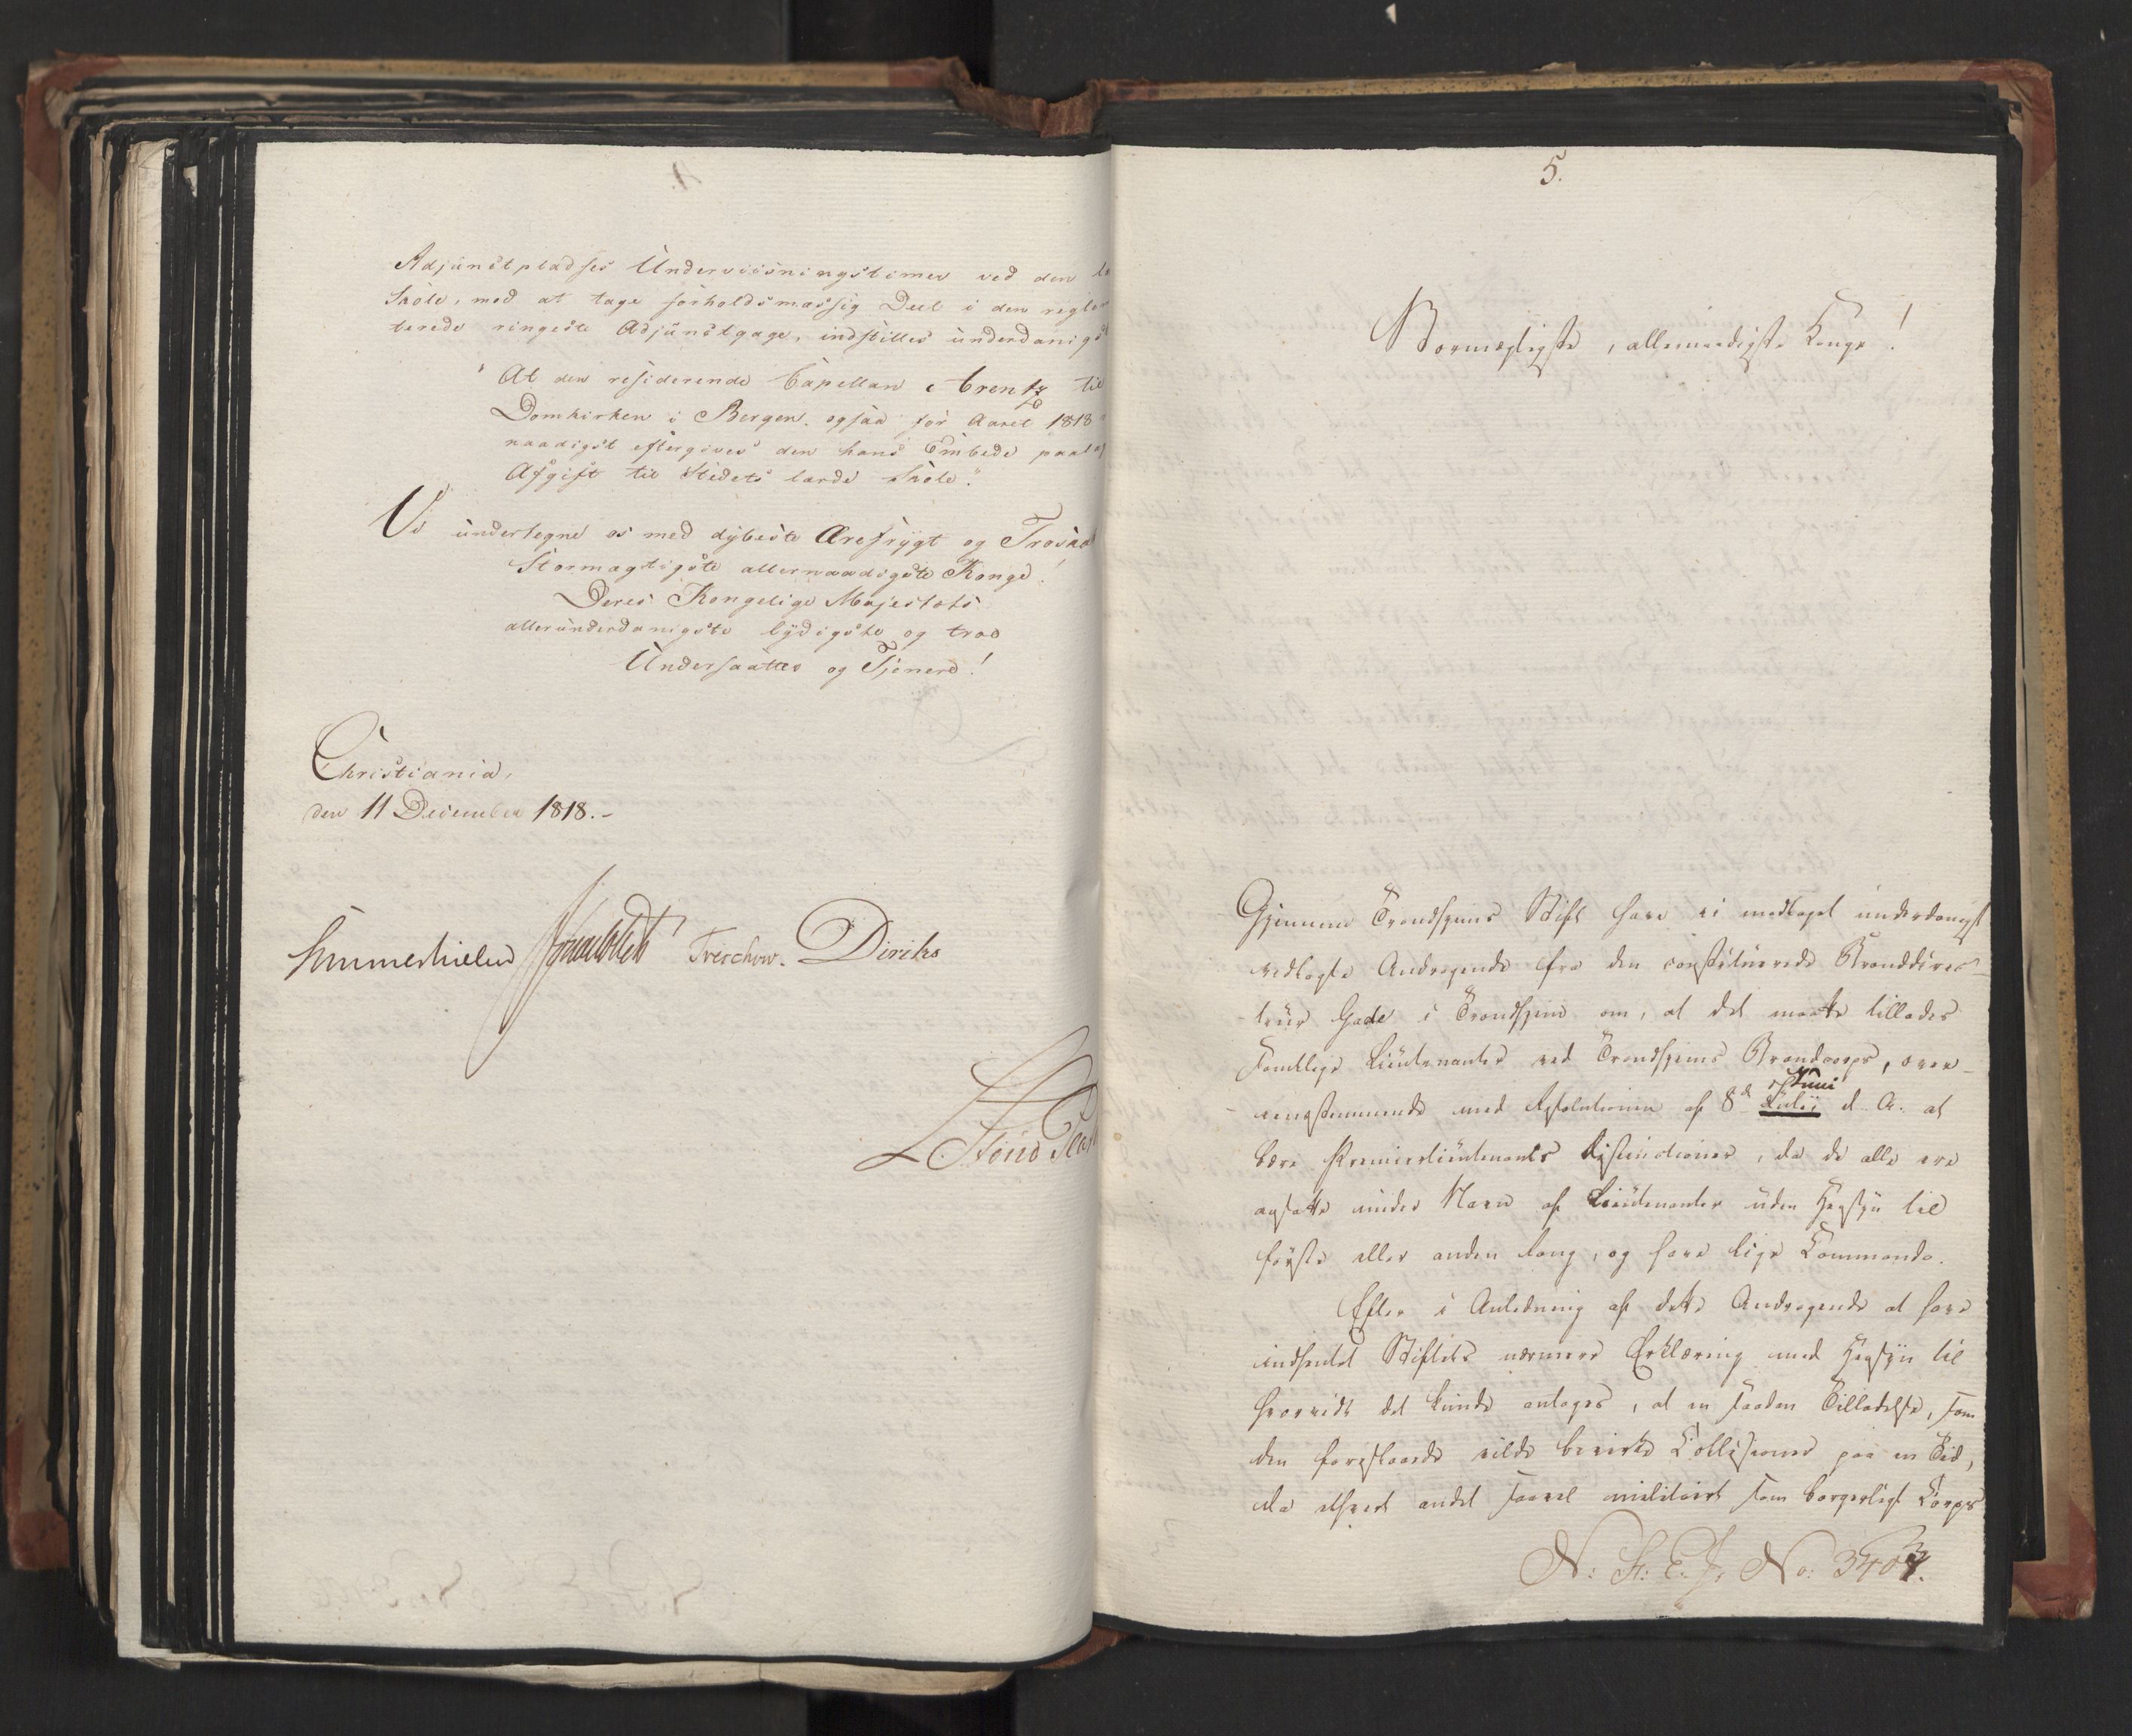 Adjunctpladses Underviisningstimer ved den
Skole, mod at tage forholdsmæssig Deel i den regle
terede ringeste Adjunctgage, indstilles underdanigst
"At den residerende Capellan Arentz til
Domkirken i Bergen, ogsaa for Aaret 1818
naadigst eftergives den hans Embede paalag
Afgift til Stedets lærde Skole."
Vi undertegne os med dybeste Ærefrygt og Troskab
Stormægtigste allernaadigste Konge!
Deres Kongelige Majestæts
allerunderdanigste lydigste og troe
Undersaatter og Tjenere!
Christiania,
den 11 December 1818.-
Sommerhielm Treschow. Diriks
5.
Stormægtigste, allernaadigste Konge!
Gjennem Trondhjems Stift have vi modtaget underdanigst
vedlagte Andragende fra den constituerede Branddirec-
teur Gade i Trondhjem om, at det maatte tillades
samtlige Lieutenanter ved Trondhjems Brandcorps, over-
eensstemmende med Resolutionen af 8d Juni Julii d. A. at
bære Premierlieutenants Distinctioner, da de alle ere
ansatte under Navn af Lieutenanter uden Hensyn til
første eller anden Rang, og have lige Commando.
Efter i Anledning af dette Andragende at have
indhentet Stiftets nærmere Erklæring med Hensyn til
hvorvidt det kunde antages, at en saadan Tilladelse, som
den foreslaaede vilde bevirke Collisioner paa en Tid,
da ethvert andet saavel militairt som borgerligt Corps
N: St: E. J. No: 3403.